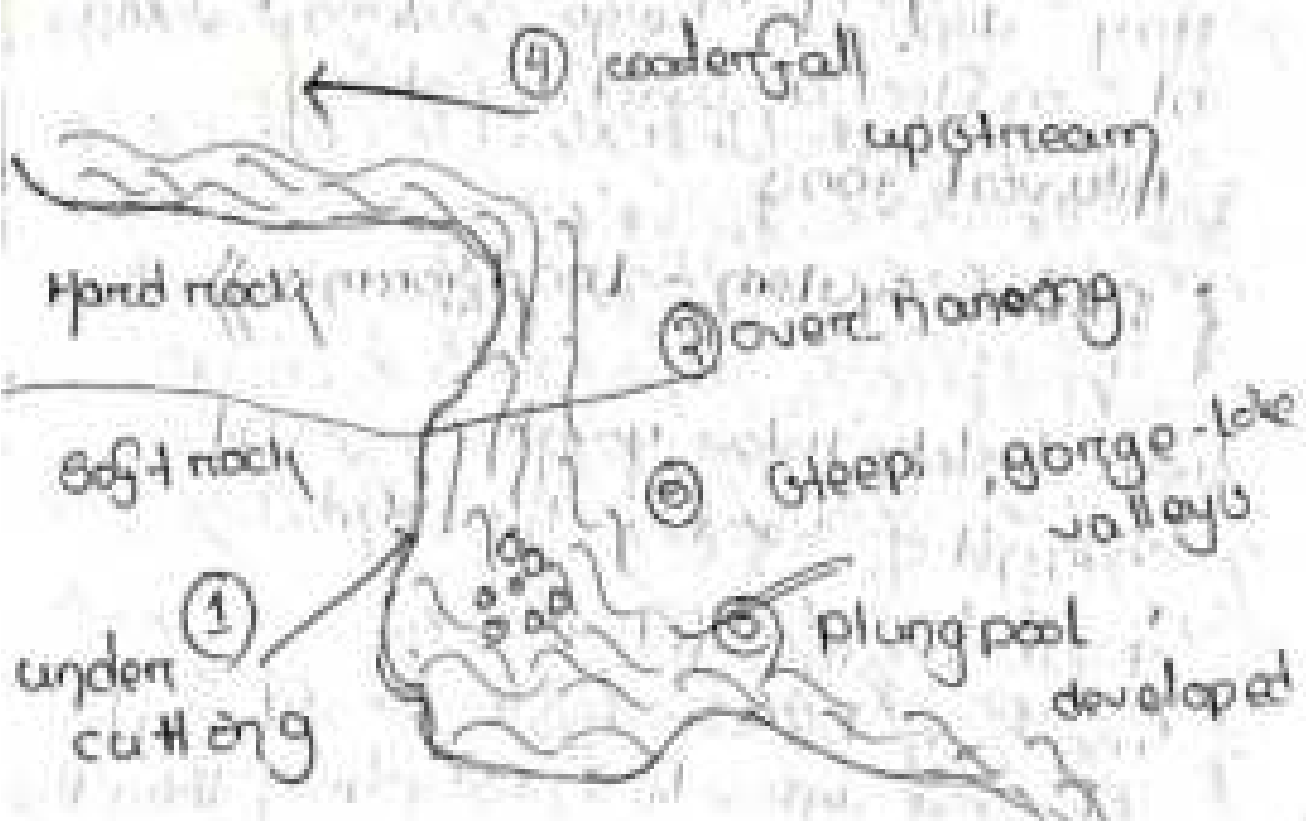 ④ waterfall
upstream
Hard rock
② over hanging
Soft rock
Steep, gorge-like
valleys
①
under
cutting
plungpool
developed